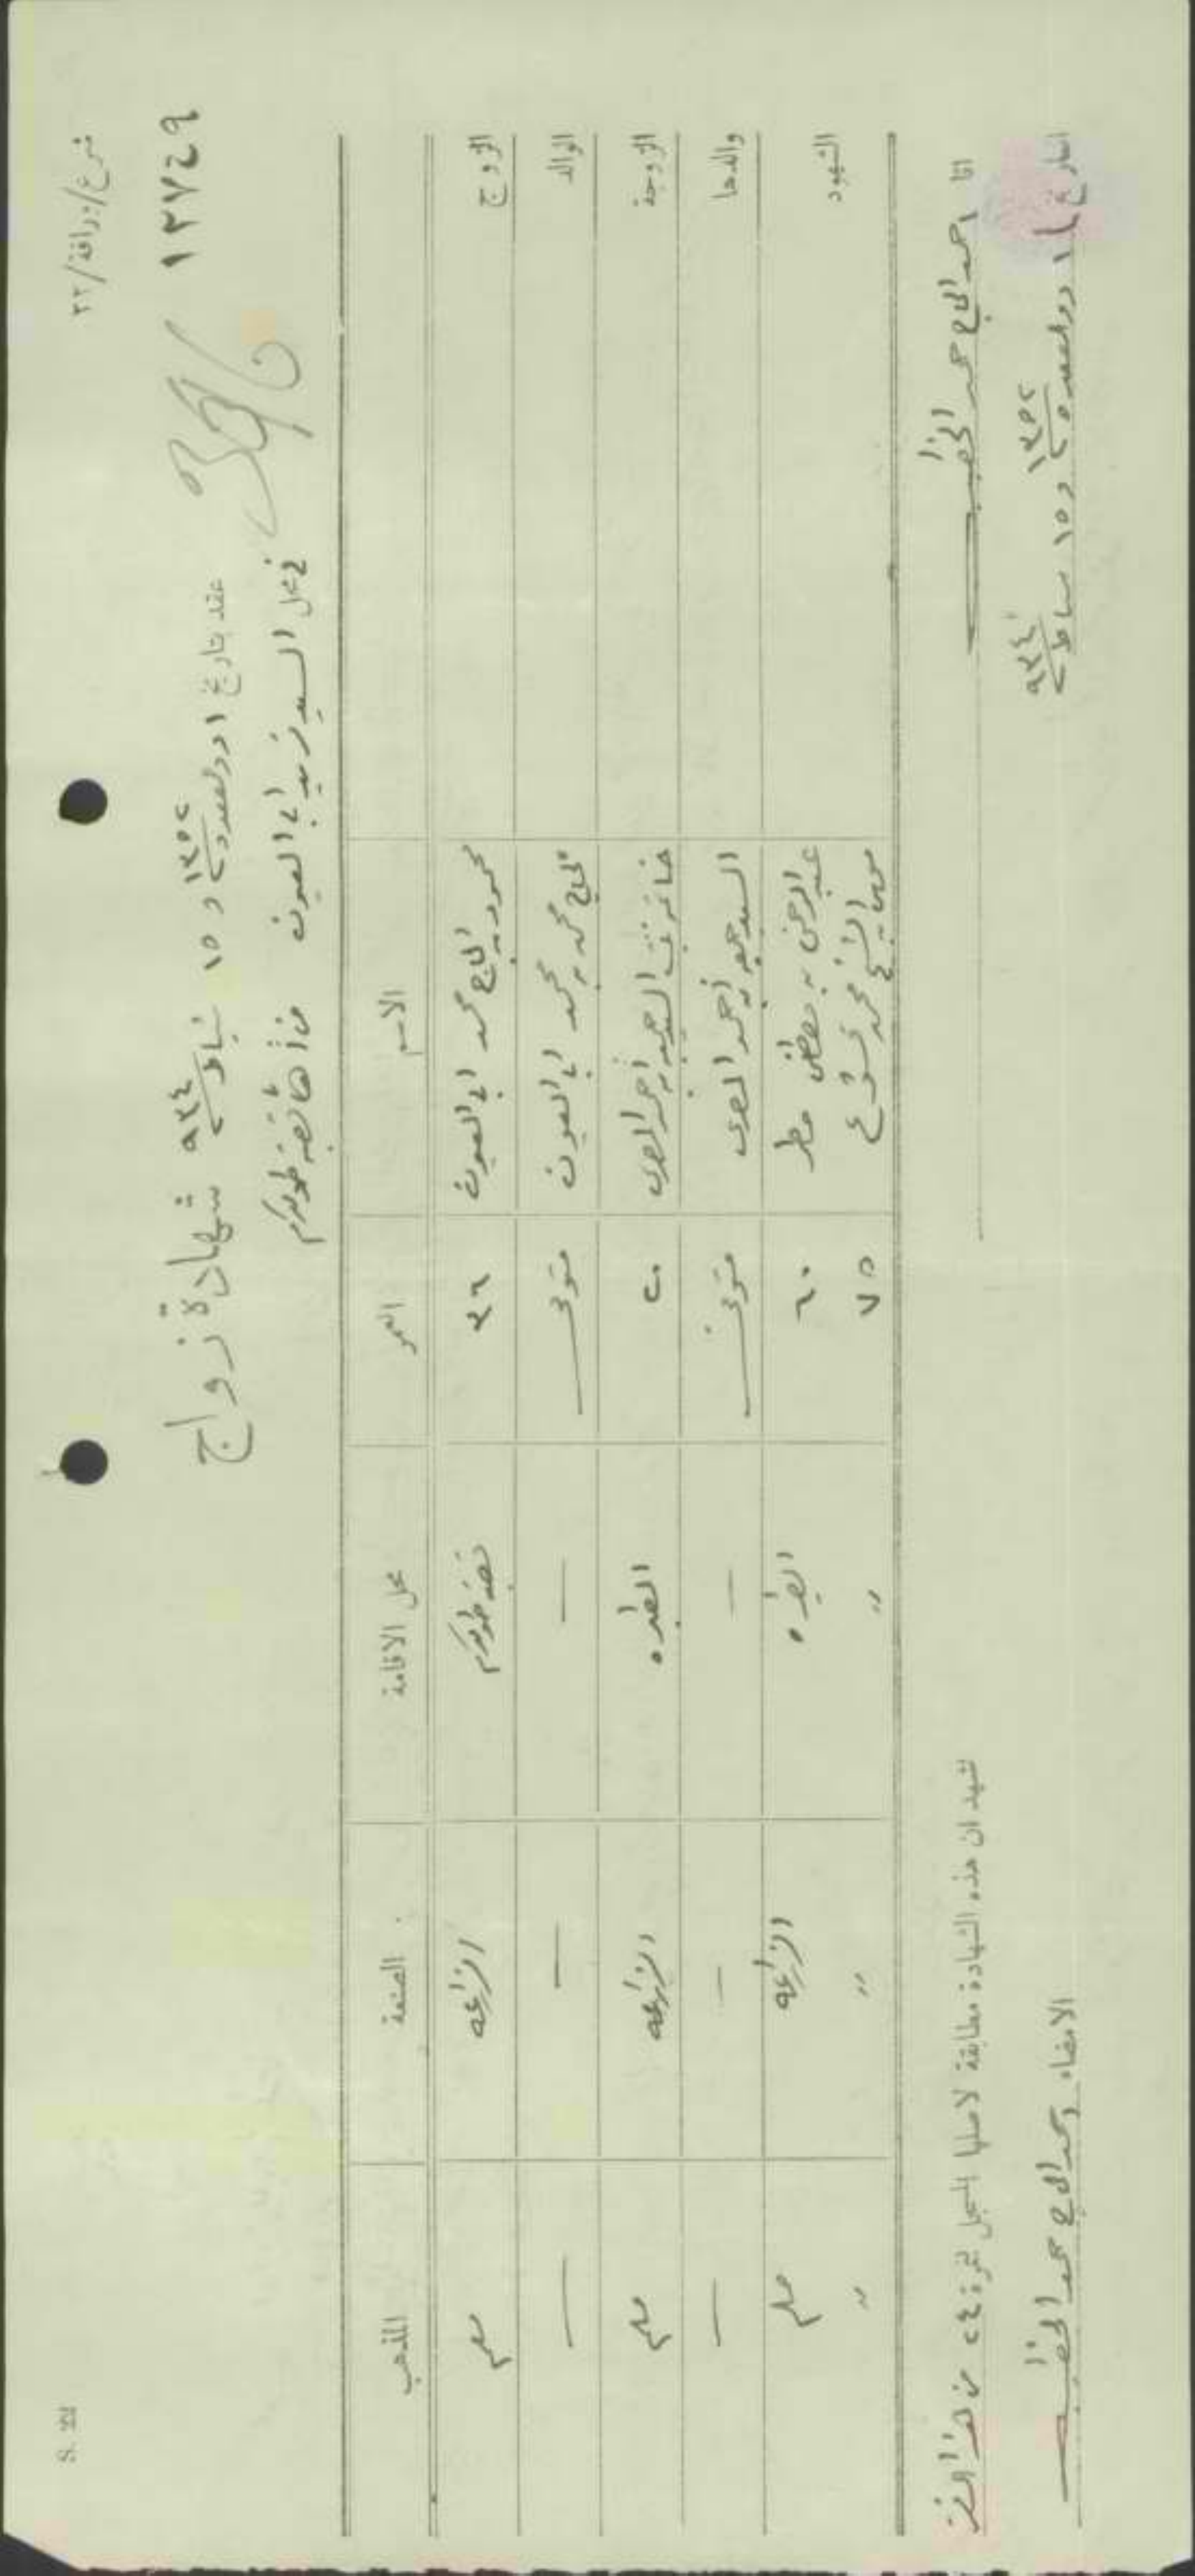 شرع/زرافة/٢٢
S. 22
١٢٧٤٩
شهادة زواج
عقد بتاريخ ١ ذوالقعدة سنة ١٣٥٢ و ١٥ شباط سنة ٩٣٤
في محل السيد زيد ابي العيون من أهالي قضاء طولكرم
الاسم العمر محل الاقامة الصنعة المذهب
الزوج محمود بن الحاج محمد ابي العيون ٣٦ قضاء طولكرم الزراعه مسلم
الوالد الحاج محمد بن محمد ابي العيون متوفى — — —
الزوجة بنت السيد أحمد المصري ٢٠ الزراعه مسلم
والدها السيد بن أحمد المصري متوفى — — —
الشهود عبد الرحمن بن مصطفى مطر ٦٠ الزراعه مسلم
الشيخ محمد ٧٥ 〃 〃 〃
انا احمد الحاج حمد الخطيب
نشهد ان هذه الشهادة مطابقة لاصلها المسجل بنمرة ٢٤ من هذا الدفتر
التاريخ ١ ذوالقعدة سنة ١٣٥٢ و ١٥ شباط سنة ٩٣٤
الامضاء احمد الحاج حمد الخطيب